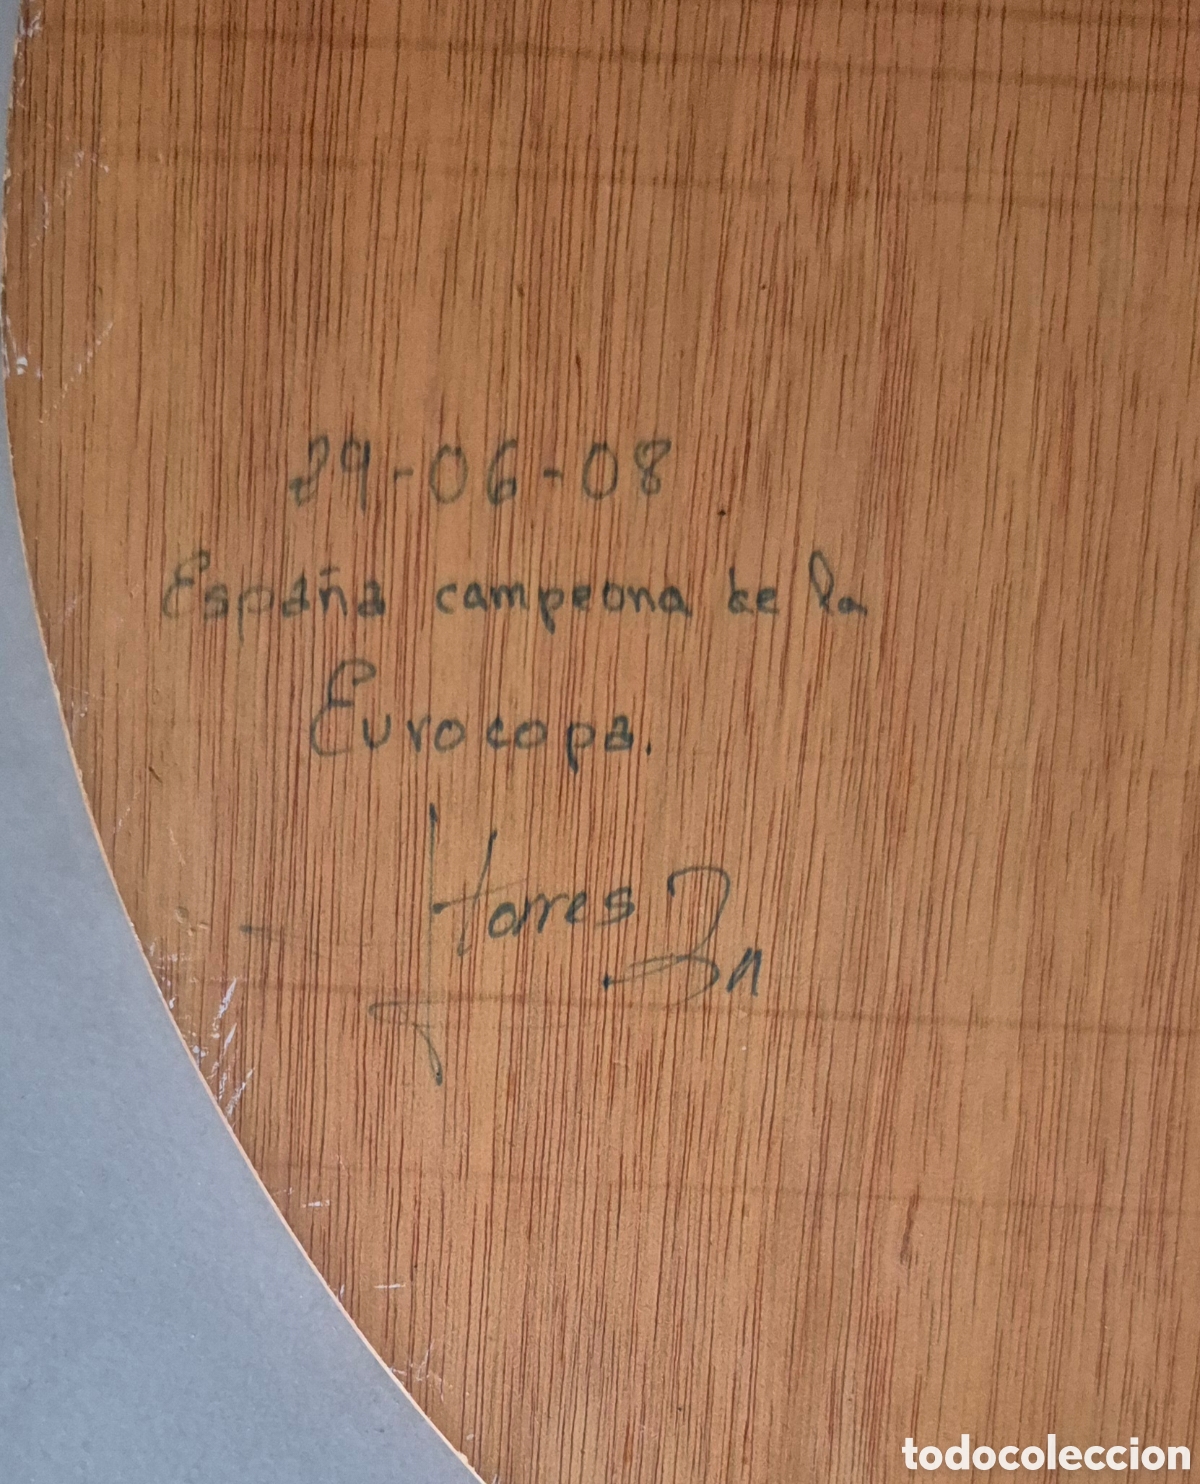 29-06-08
España campeona de la
Eurocopa.
torres
todocoleccion